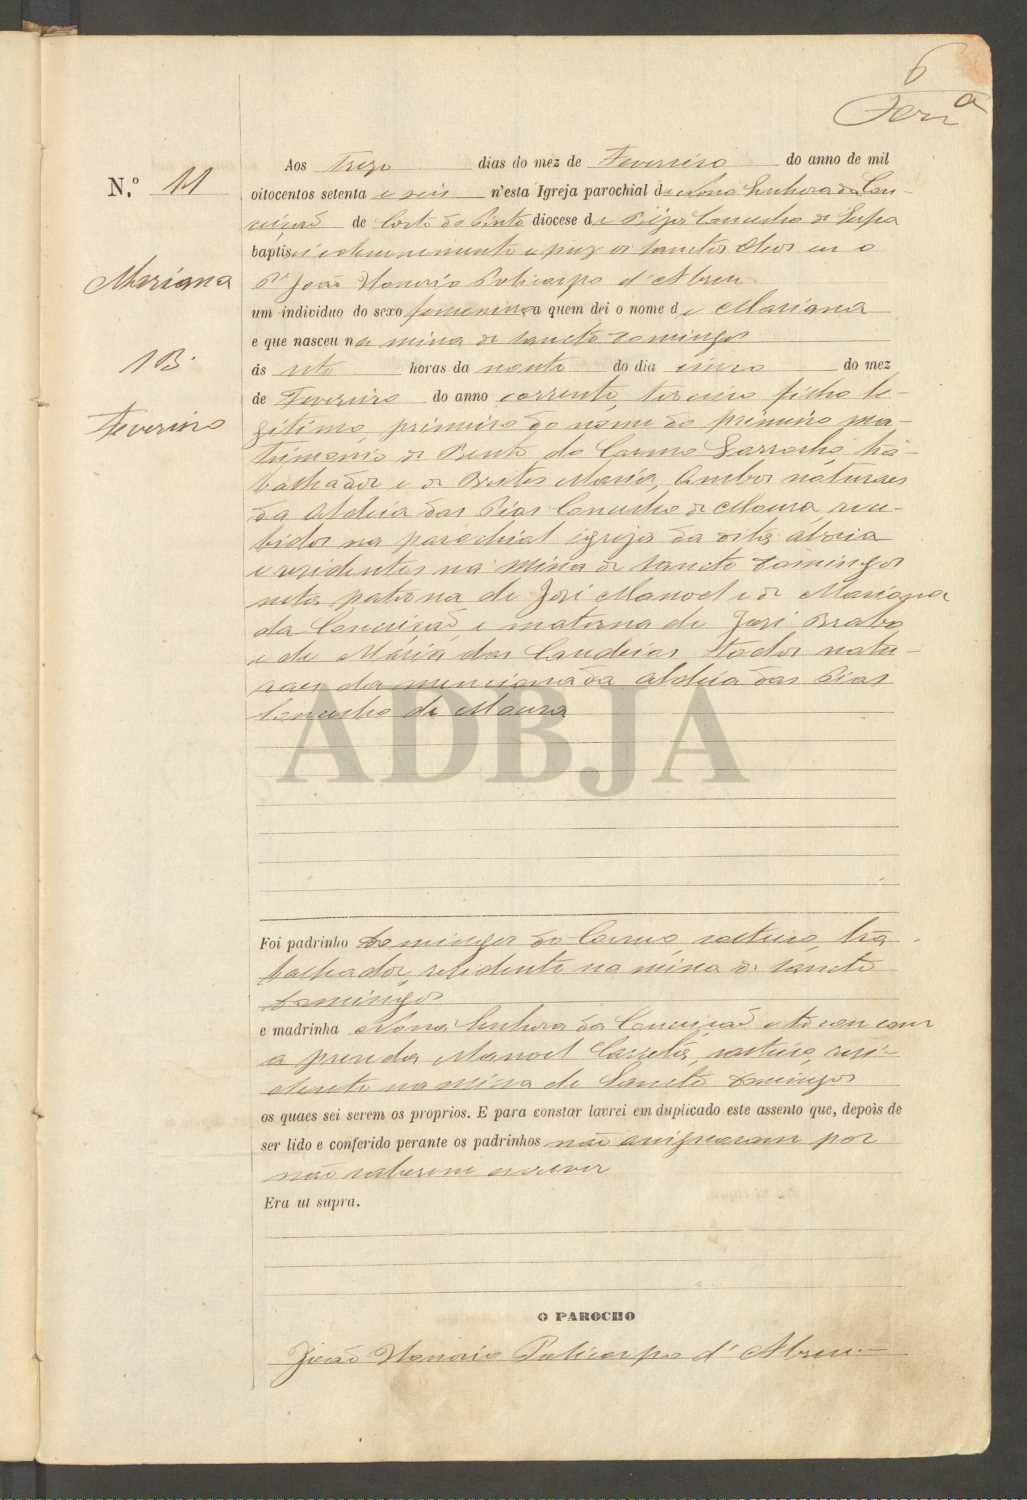 6
N.º 11
Mariana
13
Fevereiro
Aos Treze dias do mez de Fevereiro do anno de mil
oitocentos setenta e seis n'esta Igreja parochial de Nossa Senhora da Con-
ceição de Corte do Pinto diocese de Béja Concelho de Serpa
baptisei solemnemente e puz os sanctos Oleos eu o
P.e João Honorio Policarpo d'Abreu
um individuo do sexo femenino a quem dei o nome de Mariana
e que nasceu na mina de Sancto Domingos
ás sete horas da noute do dia cinco do mez
de Fevereiro do anno corrente, terceiro filho le-
gitimo, primeiro do nome do primeiro ma-
trimonio de Bento do Carmo Sarrocho, tra-
balhador e de Brites Maria, Ambos naturaes
da Aldeia das Pias Concelho de Moura, rece-
bidos na parochial igreja da dita aldeia
e residentes na Mina de Sancto Domingos
neta paterna de José Manoel e de Mariana
da Conceição e materna de José Brabo
e de Maria das Candeias todos natu-
raes da mencionada Aldeia das Pias
Concelho de Moura
ADBJA
Foi padrinho Domingos do Carmo, solteiro, tra-
balhador, residente na mina de Sancto
Domingos
e madrinha Nossa Senhora da Conceição e tocou com
a prenda Manoel solteiro, resi-
dente na Mina de Sancto Domingos
os quaes sei serem os proprios. E para constar lavrei em duplicado este assento que, depois de
ser lido e conferido perante os padrinhos não assignaram por
não saberem escrever
Era ut supra.
O PAROCHO
João Honorio Policarpo d'Abreu